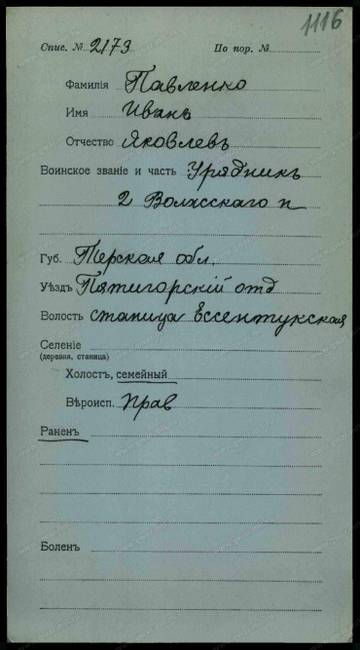 1116
Спис. № 2173 По пор. №
Фамилія Павленко
Имя Иванъ
Отчество Яковлевъ
Воинское званіе и часть Урядникъ
2 Волжскаго п
Губ. Терская обл.
Уѣздъ Пятигорскій отд
Волость станица Ессентукская
Селеніе
(деревня, станица)
Холостъ, семейный
Вѣроисп. прав
Раненъ
Боленъ